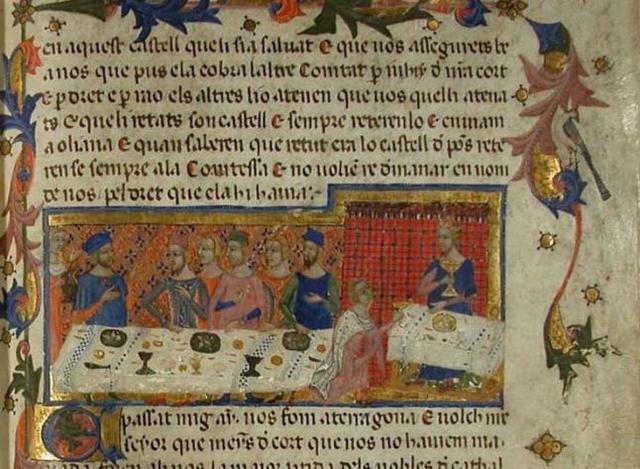 en aquest castell queli sia saluat E que uos assegurets be
a nos que pus ela cobra laltre Comtat p d nra cort
E p dret e p rao els altres ho atenen que uos quelli atena
ts E queli retats son castell E sempre reterenlo E enuiam
a oliana E quan saberen que retut era lo castell d pos rete
ren se sempre ala Comtessa E no uolien re dmanar en nom
de nos pel dret que ela hi hauia:-
passat mig ay. nos fom aterragona E uolch nre
seyor que mens d cort que nos no hauiem ma
nada foren ab nos la maior partida dels nobles d cathal